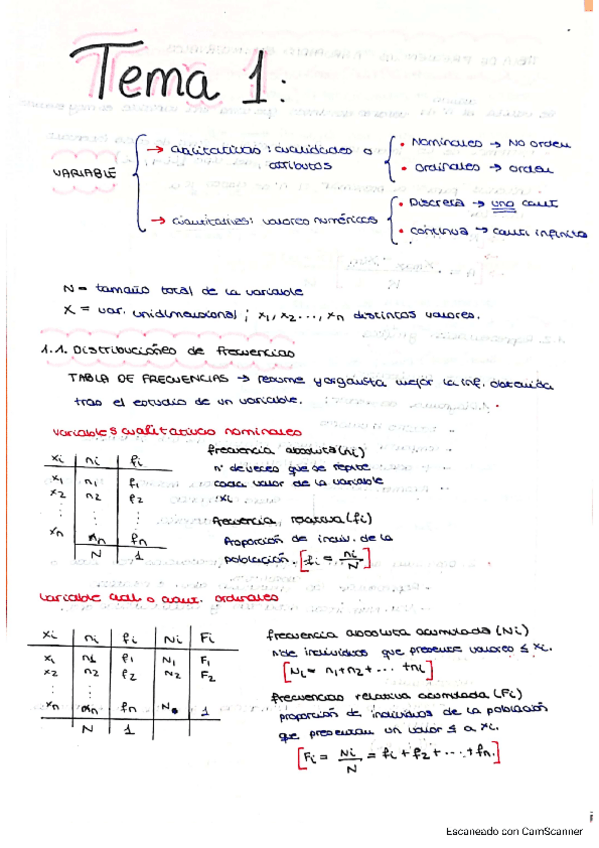 Tema 1:
VARIABLE
→ cualitativas: cualidades o atributos
• Nominales → No orden
• ordinales → orden
→ cuantitativas: valores numéricos
• Discreta → uno cant
• continua → cant infinita
N = tamaño total de la variable
X = var. unidimensional ; x1, x2 ..., xn distintos valores.
1.1. Distribuciones de frecuencias
TABLA DE FRECUENCIAS → resume y organiza mejor la inf. obtenida
tras el estudio de un variable.
variables cualitativas nominales
xi ni fi
x1 n1 f1
x2 n2 f2
⋮ ⋮ ⋮
xn nn fn
N 1
frecuencia absoluta (ni)
nº de veces que se repite
cada valor de la variable
xi
frecuencia relativa (fi)
Proporción de indiv. de la
población. [fi = ni/N]
variable cual. o cuant. ordinales
xi ni fi Ni Fi
x1 n1 f1 N1 F1
x2 n2 f2 N2 F2
⋮ ⋮
xn nn fn N 1
N 1
frecuencia absoluta acumulada (Ni)
nº de individuos que presente valores ≤ xi.
[Ni = n1+n2+ ... +ni]
frecuencias relativa acumulada (Fi)
proporción de individuos de la población
que presentan un valor ≤ a xi.
[Fi = Ni/N = fi + f2 + ... + fn.]
Escaneado con CamScanner